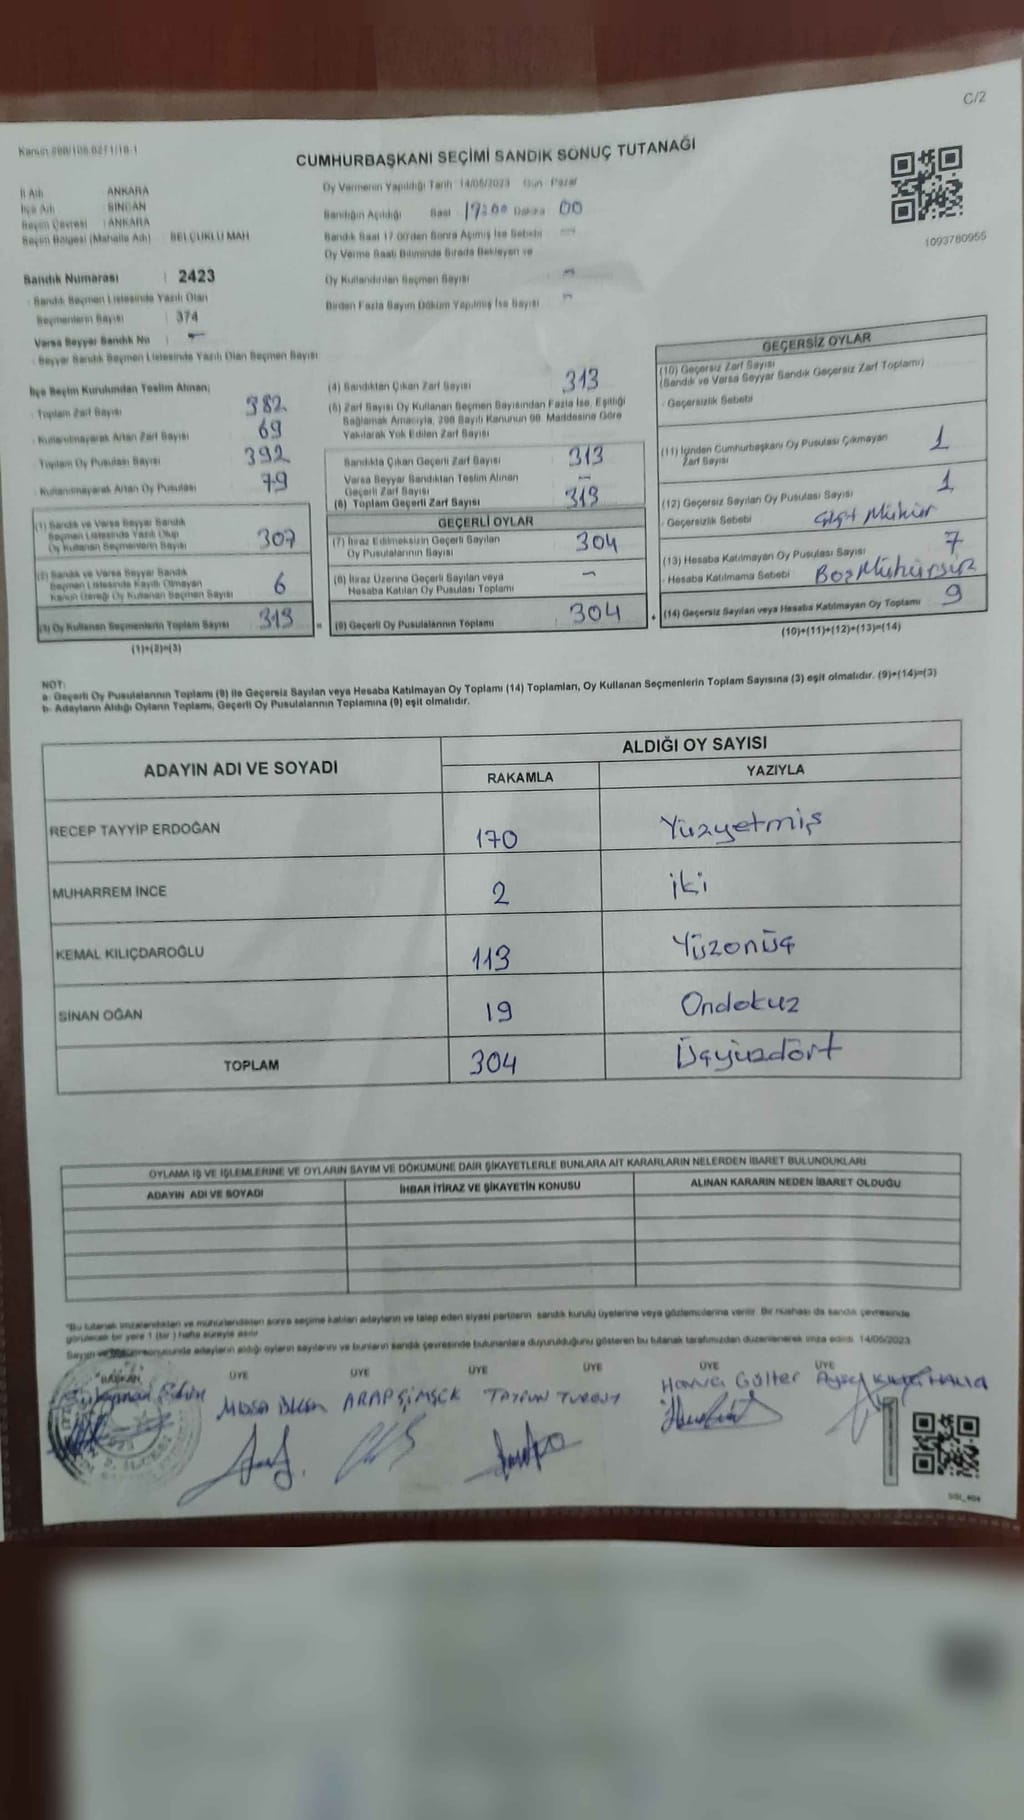 C/2
CUMHURBAŞKANI SEÇİMİ SANDIK SONUÇ TUTANAĞI
1093780955
İl Adı : ANKARA
İlçe Adı : SİNCAN
Seçim Çevresi : ANKARA
Seçim Bölgesi (Mahalle Adı) : SELÇUKLU MAH
Sandık Numarası : 2423
Sandık Seçmen Listesinde Yazılı Olan
Seçmenlerin Sayısı : 374
Varsa Seyyar Sandık No : -
Seyyar Sandık Seçmen Listesinde Yazılı Olan Seçmen Sayısı
Oy Vermenin Yapıldığı Tarih : 14/05/2023 Gün : Pazar
Sandığın Açıldığı Saat Dakika 00
Sandık Saat 17.00'den Sonra Açılmış İse Sebebi -
Oy Verme Saati Bitiminde Sırada Bekleyen ve
Oy Kullandırılan Seçmen Sayısı -
Birden Fazla Sayım Döküm Yapılmış İse Sayısı -
İlçe Seçim Kurulundan Teslim Alınan;
Toplam Zarf Sayısı 382
Kullanılmayarak Artan Zarf Sayısı 69
Toplam Oy Pusulası Sayısı 392
Kullanılmayarak Artan Oy Pusulası 79
(1) Sandık ve Varsa Seyyar Sandık
Seçmen Listesinde Yazılı Olup
Oy Kullanan Seçmenlerin Sayısı 307
(2) Sandık ve Varsa Seyyar Sandık
Seçmen Listesinde Kayıtlı Olmayan
Kanun Gereği Oy Kullanan Seçmen Sayısı 6
(3) Oy Kullanan Seçmenlerin Toplam Sayısı 313
(1)+(2)=(3)
(4) Sandıktan Çıkan Zarf Sayısı 313
(5) Zarf Sayısı Oy Kullanan Seçmen Sayısından Fazla İse, Eşitliği
Sağlamak Amacıyla, 298 Sayılı Kanunun 98. Maddesine Göre
Yakılarak Yok Edilen Zarf Sayısı
Sandıkta Çıkan Geçerli Zarf Sayısı 313
Varsa Seyyar Sandıktan Teslim Alınan
Geçerli Zarf Sayısı -
(6) Toplam Geçerli Zarf Sayısı 313
GEÇERLİ OYLAR
(7) İtiraz Edilmeksizin Geçerli Sayılan
Oy Pusulalarının Sayısı 304
(8) İtiraz Üzerine Geçerli Sayılan veya
Hesaba Katılan Oy Pusulası Toplamı -
(9) Geçerli Oy Pusulalarının Toplamı 304
GEÇERSİZ OYLAR
(10) Geçersiz Zarf Sayısı
(Sandık ve Varsa Seyyar Sandık Geçersiz Zarf Toplamı)
- Geçersizlik Sebebi
(11) İçinden Cumhurbaşkanı Oy Pusulası Çıkmayan
Zarf Sayısı 1
(12) Geçersiz Sayılan Oy Pusulası Sayısı 1
- Geçersizlik Sebebi Çift Mühür
(13) Hesaba Katılmayan Oy Pusulası Sayısı 7
- Hesaba Katılmama Sebebi Boş Mühürsüz
(14) Geçersiz Sayılan veya Hesaba Katılmayan Oy Toplamı 9
(10)+(11)+(12)+(13)=(14)
NOT:
a- Geçerli Oy Pusulalarının Toplamı (9) ile Geçersiz Sayılan veya Hesaba Katılmayan Oy Toplamı (14) Toplamları, Oy Kullanan Seçmenlerin Toplam Sayısına (3) eşit olmalıdır. (9)+(14)=(3)
b- Adayların Aldığı Oyların Toplamı, Geçerli Oy Pusulalarının Toplamına (9) eşit olmalıdır.
ADAYIN ADI VE SOYADI ALDIĞI OY SAYISI
RAKAMLA YAZIYLA
RECEP TAYYİP ERDOĞAN 170 Yüzyetmiş
MUHARREM İNCE 2 iki
KEMAL KILIÇDAROĞLU 113 Yüzonüç
SİNAN OĞAN 19 Ondokuz
TOPLAM 304 Üçyüzdört
OYLAMA İŞ VE İŞLEMLERİNE VE OYLARIN SAYIM VE DÖKÜMÜNE DAİR ŞİKAYETLERLE BUNLARA AİT KARARLARIN NELERDEN İBARET BULUNDUKLARI
ADAYIN ADI VE SOYADI İHBAR İTİRAZ VE ŞİKAYETİN KONUSU ALINAN KARARIN NEDEN İBARET OLDUĞU
"Bu tutanak imzalandıktan ve mühürlendikten sonra seçime katılan adayların ve talep eden siyasi partilerin sandık kurulu üyelerine veya gözlemcilerine verilir. Bir nüshası da sandık çevresinde
görülecek bir yere 1 (bir) hafta süreyle asılır
Sayım ve döküm sonucunda adayların aldığı oyların sayılarını ve bunların sandık çevresinde bulunanlara duyurulduğunu gösteren bu tutanak tarafımızdan düzenlenerek imza edildi. 14/05/2023
BAŞKAN ÜYE ÜYE ÜYE ÜYE ÜYE ÜYE
ARAP ŞİMŞEK TAYFUN Havva Gülter